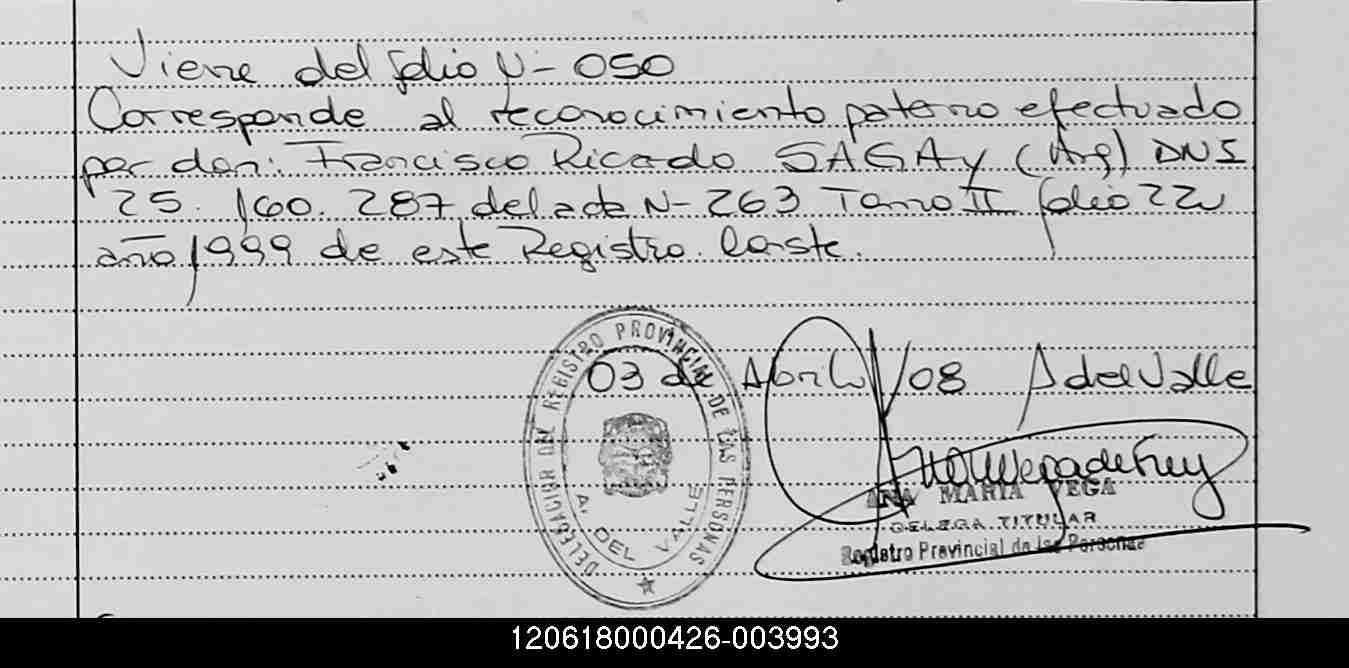 Viene del folio N- 050
Corresponde al reconocimiento paterno efectuado
por don: Francisco Ricado SAGAY (Arg) DNI
25.160.287 del acta N- 263 Tomo II folio 22
año 1999 de este Registro. Conste.
DELEGACION DEL REGISTRO PROVINCIAL DE LAS PERSONAS
A. DEL VALLE
03 de Abril /08 A del Valle
ANA MARIA VEGA
DELEGA TITULAR
Registro Provincial de las Personas
120618000426-003993